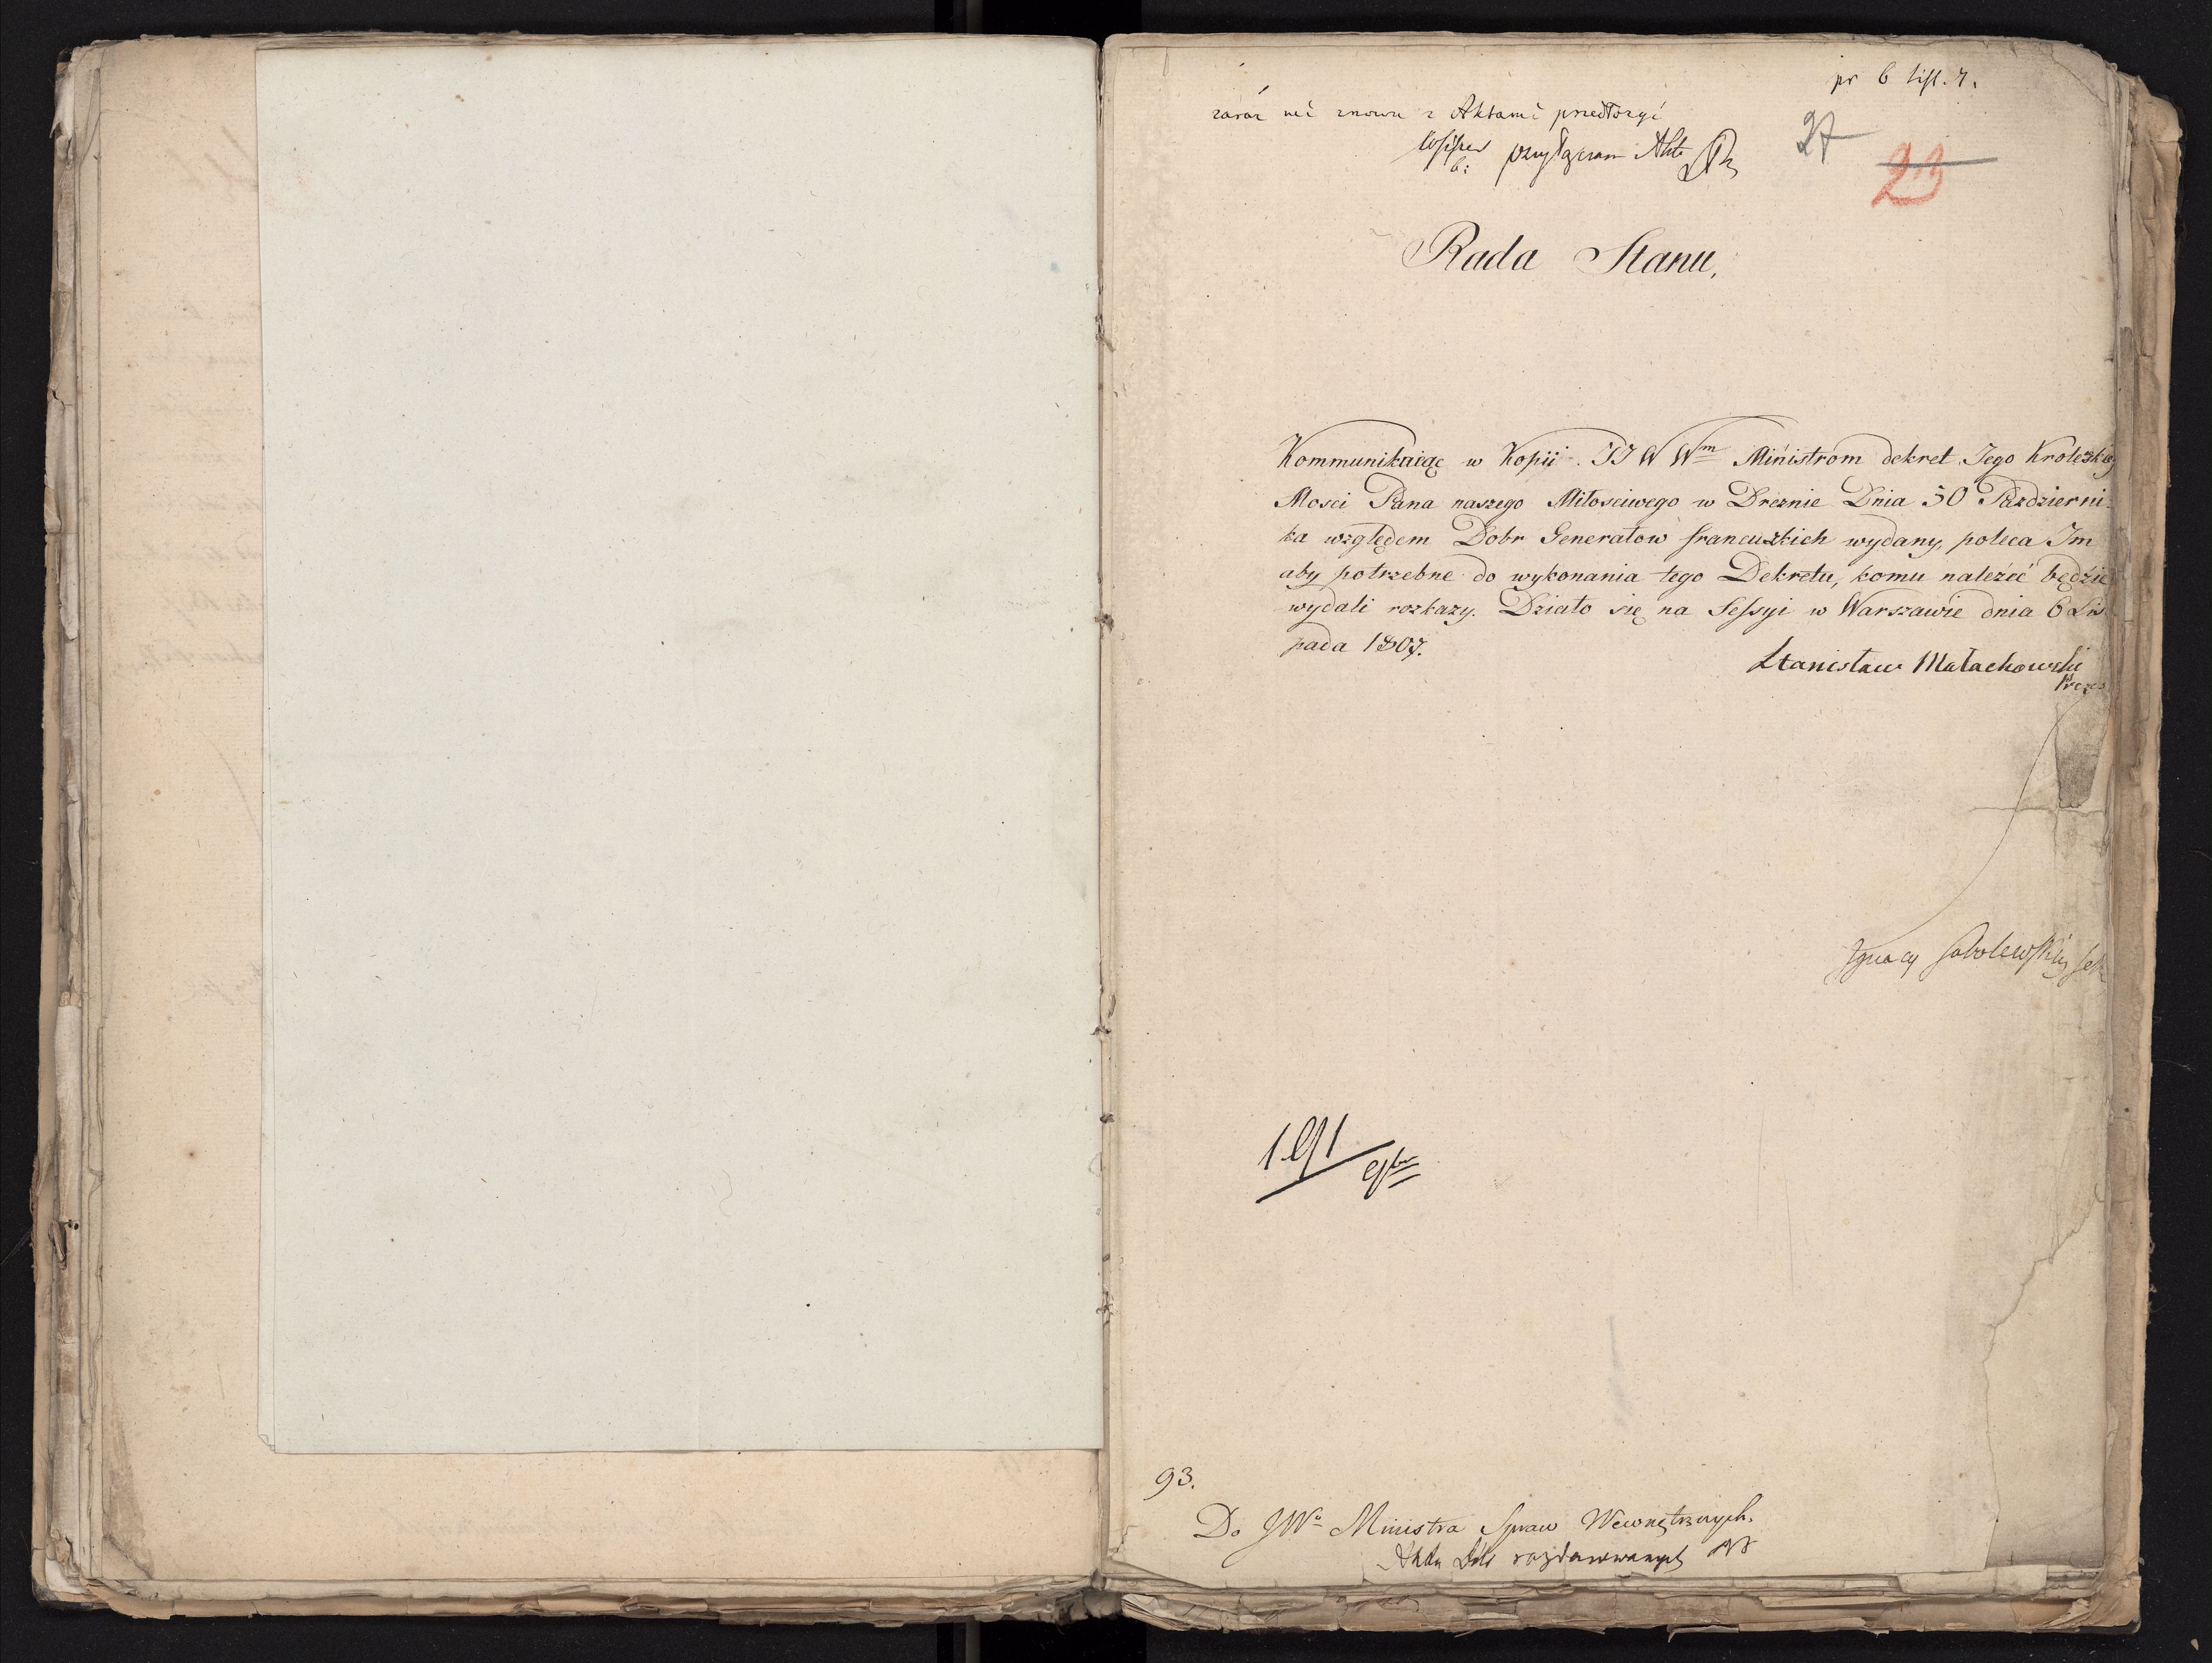 pr 6 List. 7.
zaraz mi znowu z Aktami przedłożyć
27
przyłączam Akta
23
Rada Stanu,
Kommunikaiąc w Kopii JJWW^m Ministrom dekret Jego Krolewskiey
Mosci Pana naszego Miłosciwego w Dreznie Dnia 30 Pazdzierni-
ka względem Dobr Generałow francuzkich wydany, poleca Im
aby potrzebne do wykonania tego Dekretu, komu należeć będzie
wydali rozkazy. Działo się na Sessyi w Warszawie dnia 6 Lis
pada 1807.
Stanisław Małachowski
Prezes
Ignacy Sobolewski Sek
191/9br
93.
Do JW^o Ministra Spraw Wewnętrznych.
Akta Dóbr rozdarowanych